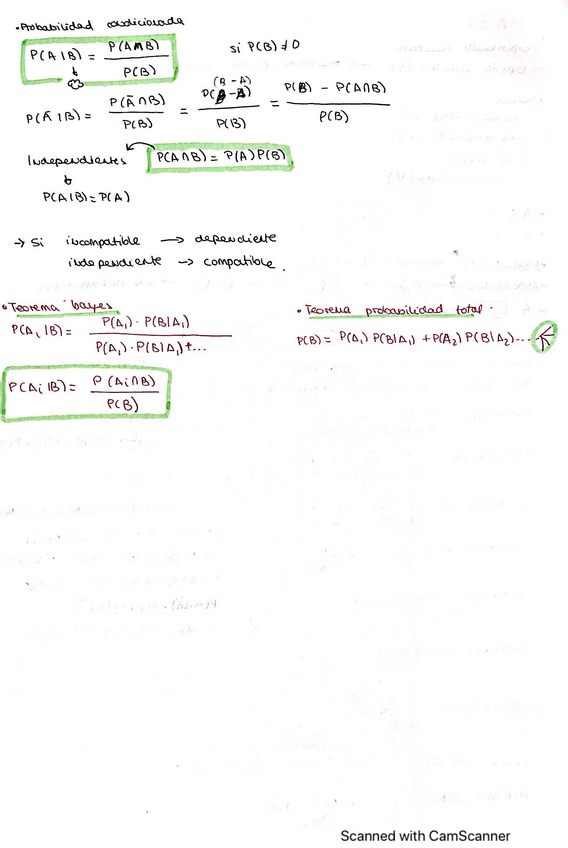 • Probabilidad condicionada
P(A|B) = P(A∩B) / P(B)   si P(B) ≠ 0
P(Ā|B) = P(Ā∩B) / P(B) = P(B-A) / P(B) = P(B) - P(A∩B) / P(B)
Independientes   P(A∩B) = P(A)P(B)
P(A|B) = P(A)
→ Si incompatible → dependiente
independiente → compatible.
• Teorema bayes
P(A₁|B) = P(A₁) · P(B|A₁) / P(A₁) · P(B|A₁)+...
P(Ai|B) = P(Ai∩B) / P(B)
• Teorema probabilidad total.
P(B) = P(A₁) P(B|A₁) + P(A₂) P(B|A₂)....
Scanned with CamScanner